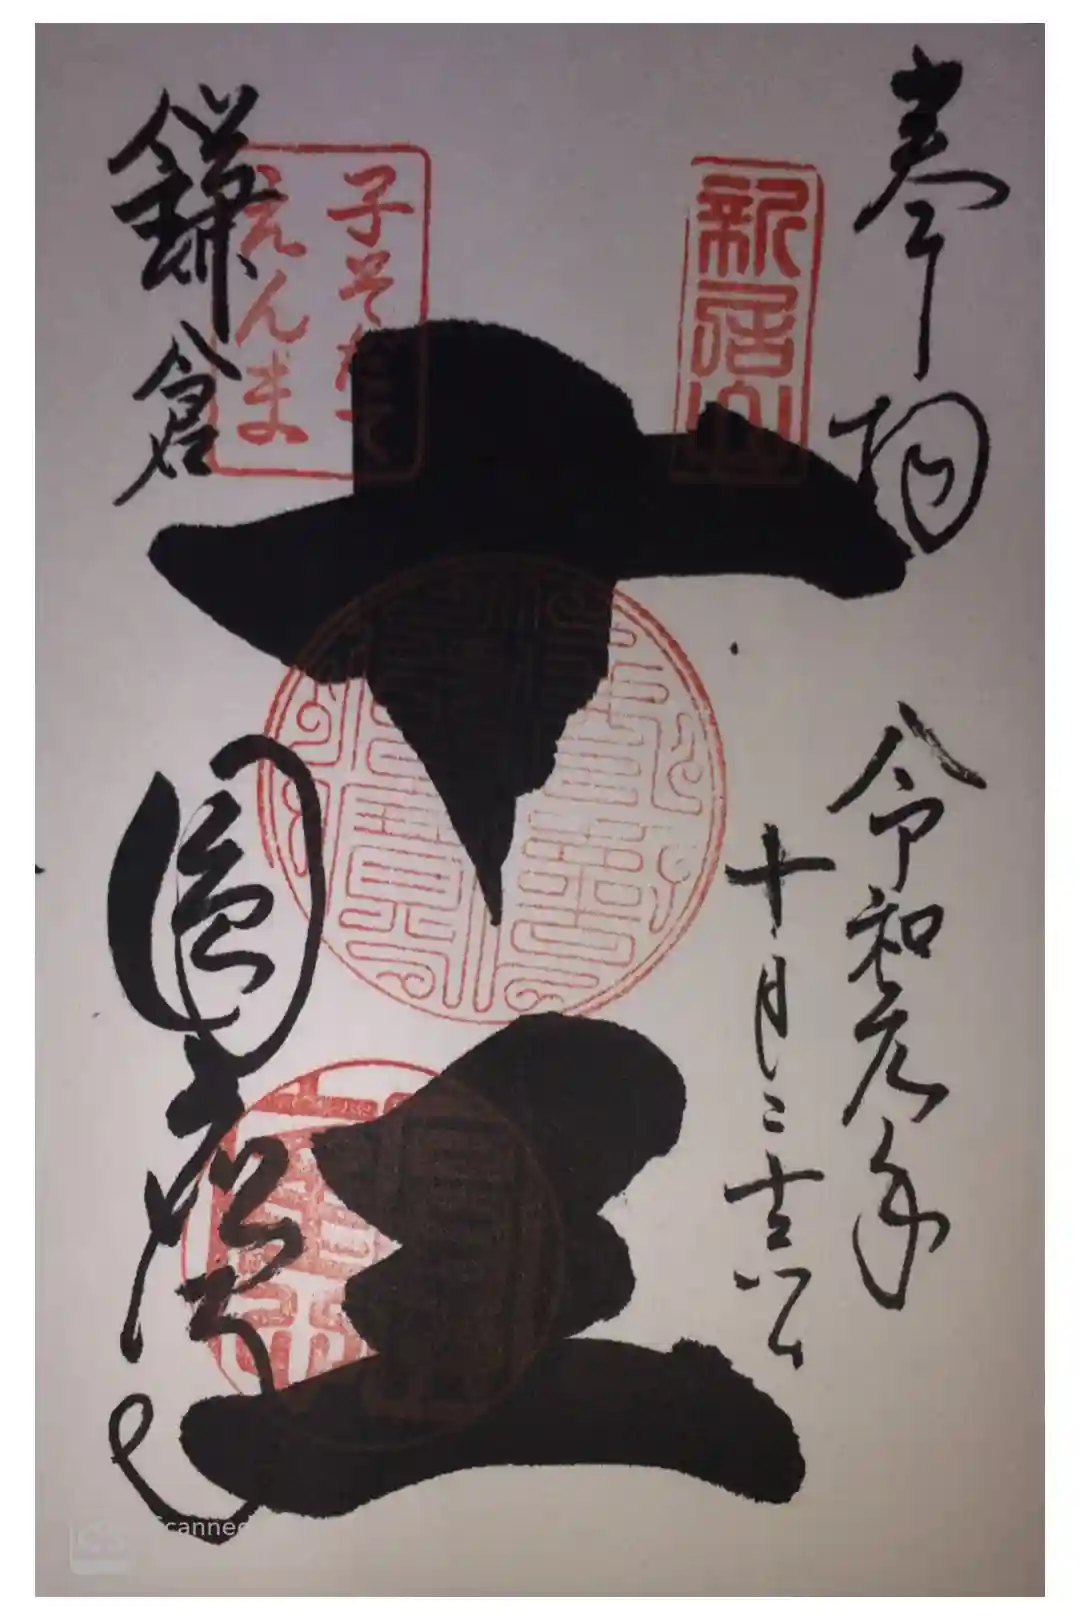 奉拝
新居山
令和元年
十月二十六日
十王
子そだて
えんま
鎌倉
圓應寺
Scanned